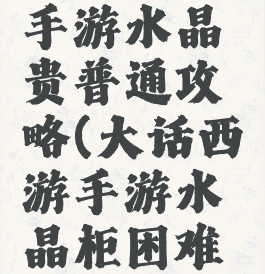 手游水晶
贵普通攻
略(大话西
游手游水
晶柜困难